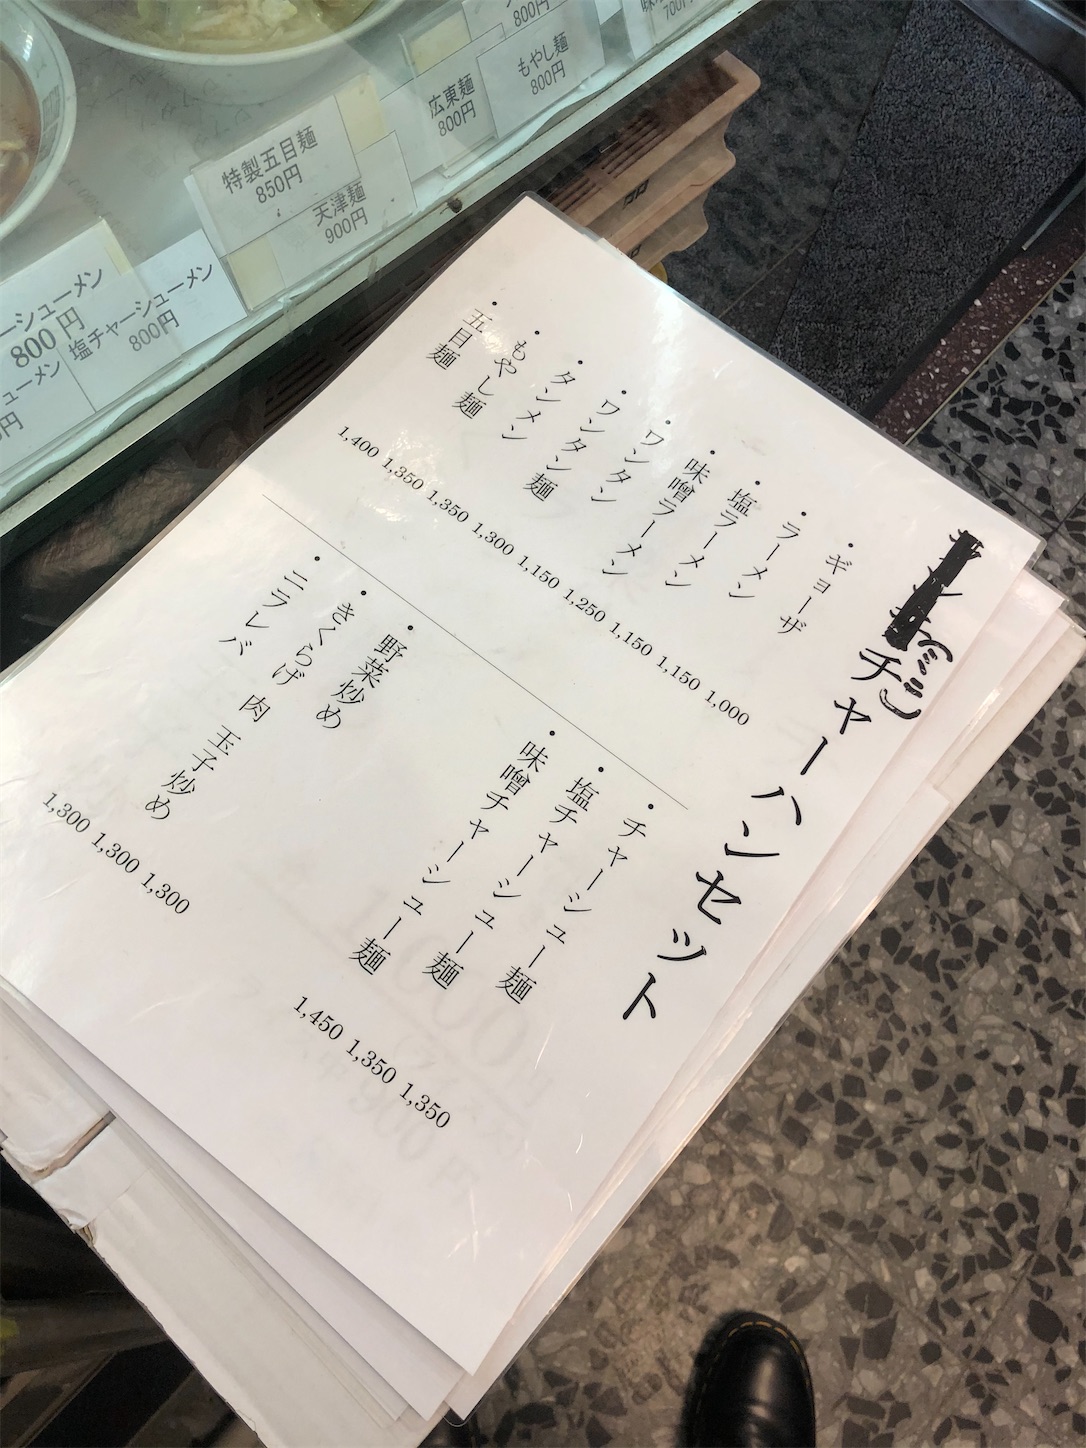 ミニチャーハンセット
・ギョーザ 1,000
・ラーメン 1,150
・塩ラーメン 1,150
・味噌ラーメン 1,250
・ワンタン 1,150
・ワンタン麺 1,300
・タンメン 1,350
・もやし麺 1,350
・五目麺 1,400
・チャーシュー麺 1,350
・塩チャーシュー麺 1,350
・味噌チャーシュー麺 1,450
・野菜炒め 1,300
・きくらげ 肉 玉子炒め 1,300
・ニラレバ 1,300
800円
700円
もやし麺
800円
広東麺
800円
特製五目麺
850円
天津麺
900円
ーシューメン
800円
塩チャーシューメン
800円
ューメン
円